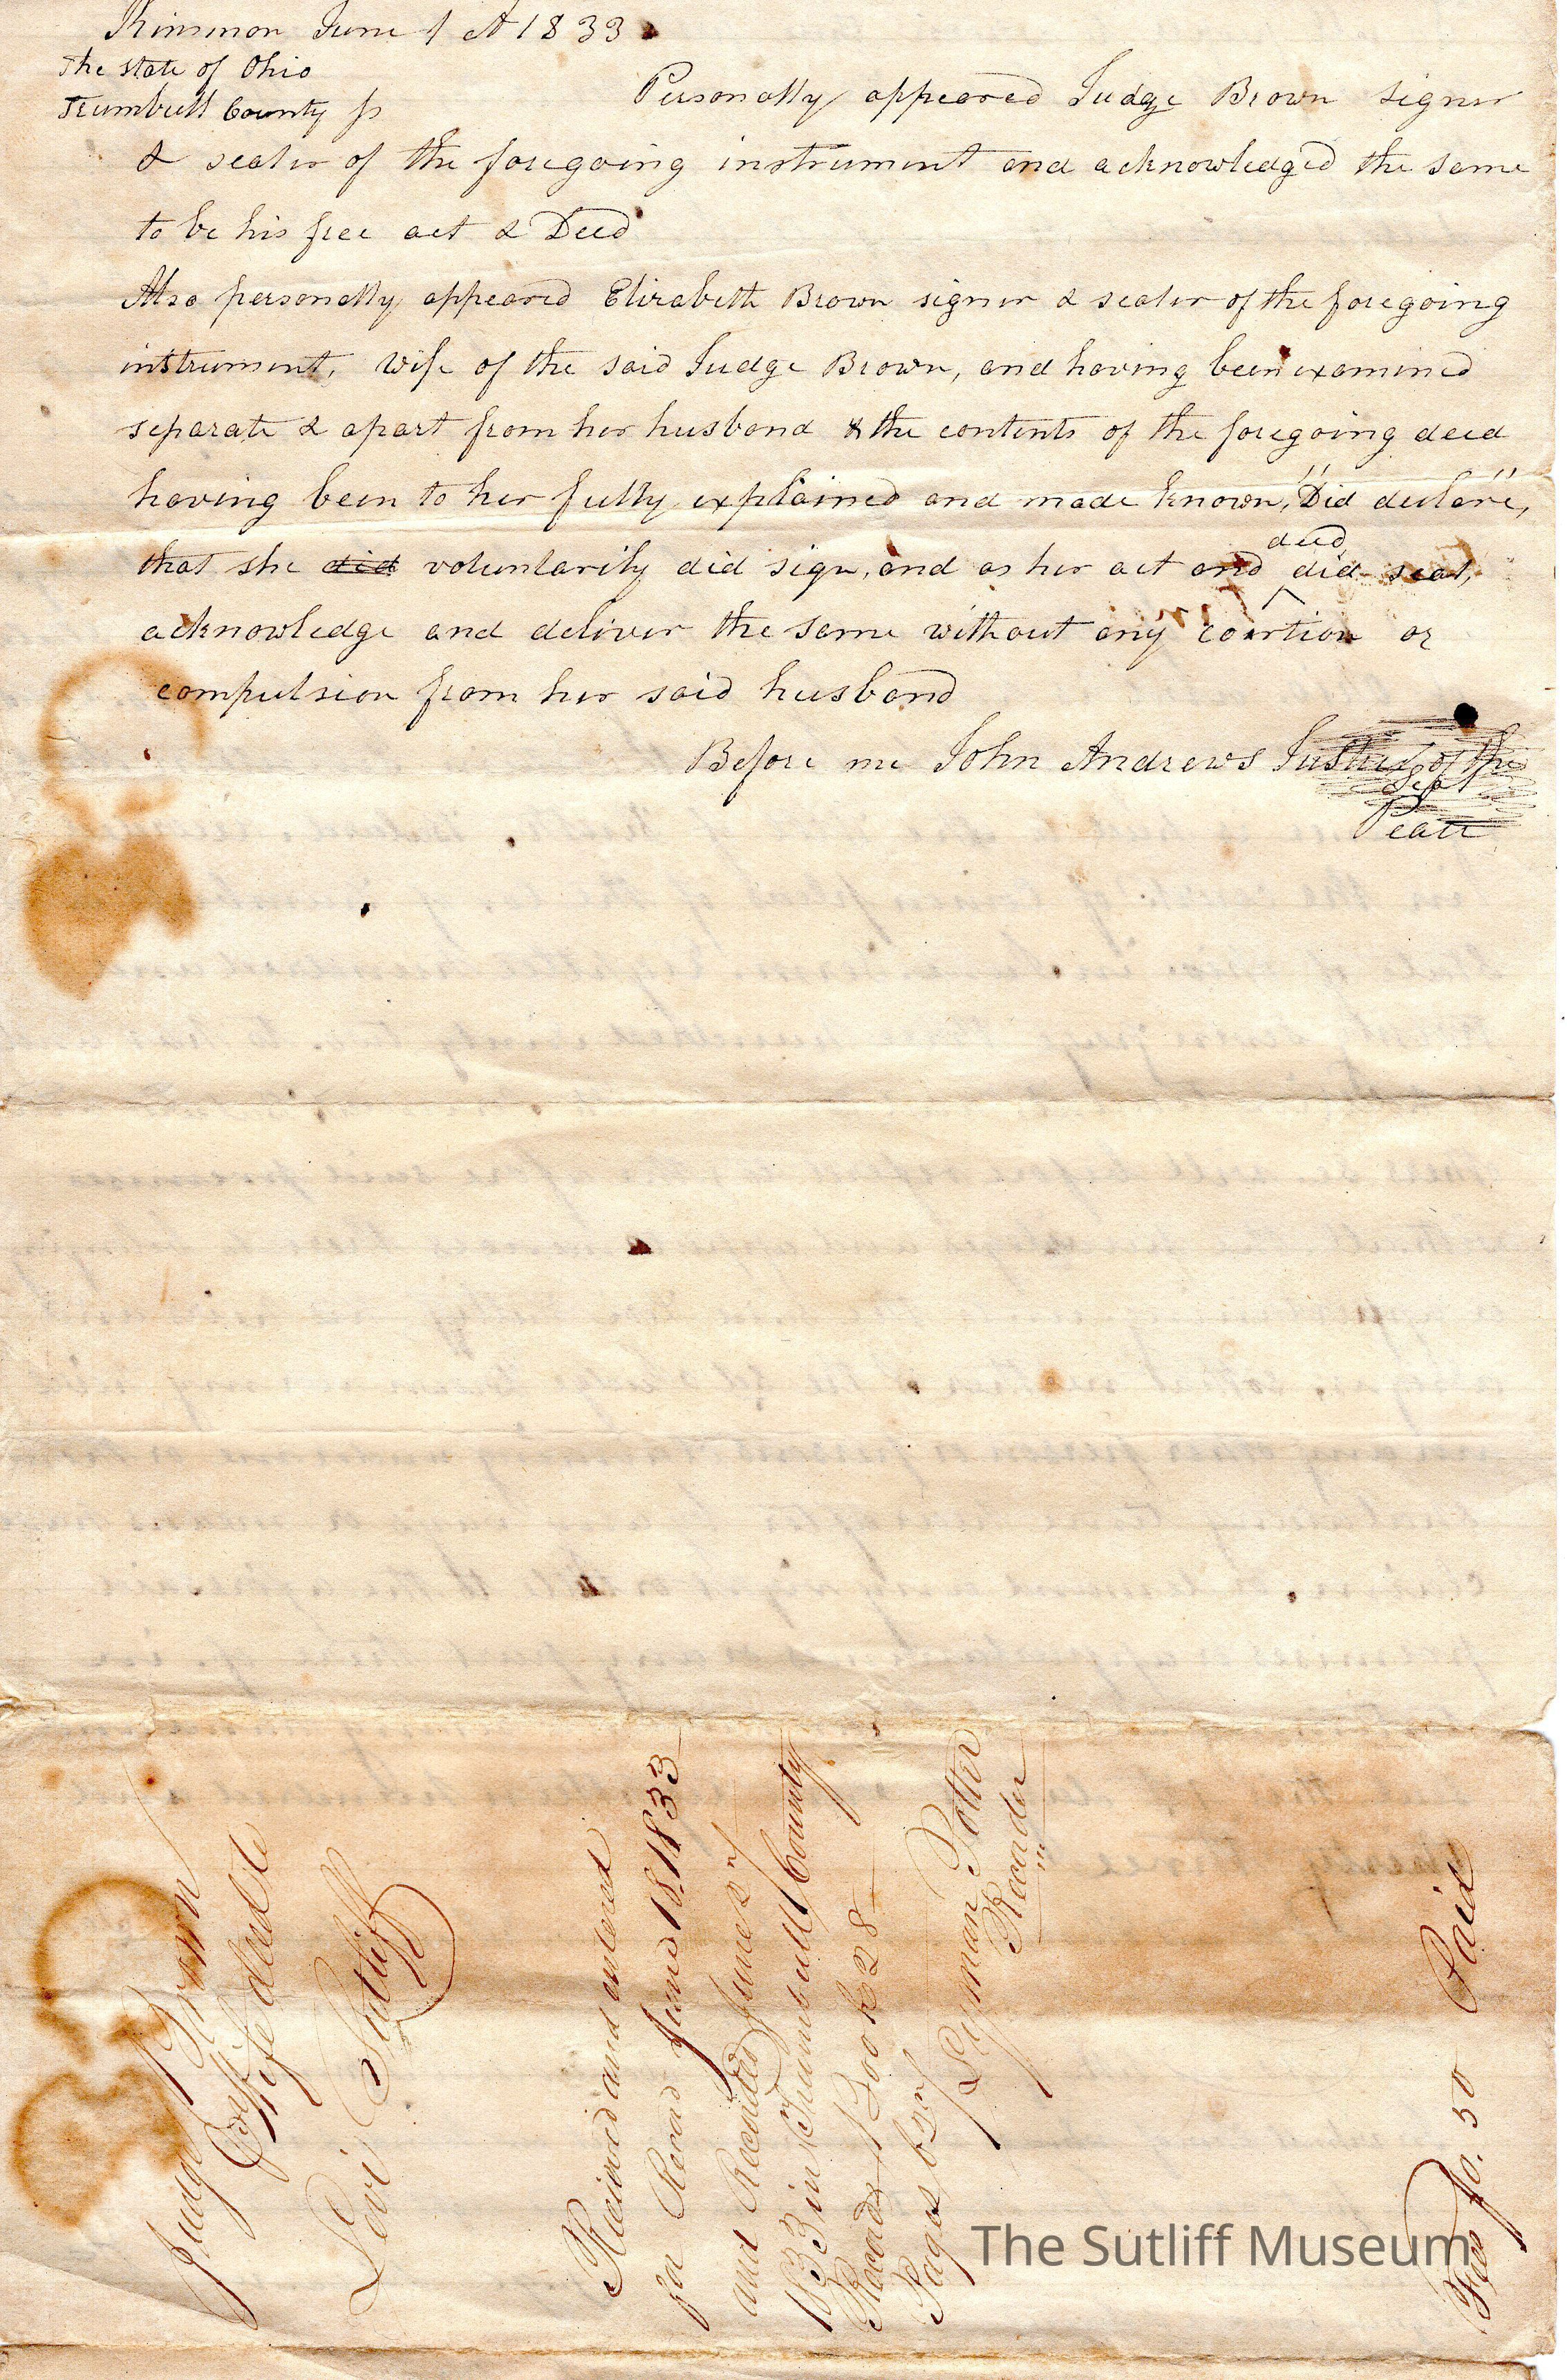 Kinsman June 1 A 1833
The State of Ohio
Trumbull County ss
Personally appeared Judge Brown signer
& sealer of the foregoing instrument and acknowledged the same
to be his free act & Deed
Also personally appeared Elizabeth Brown signer & sealer of the foregoing
instrument, wife of the said Judge Brown, and having been examined
separate & apart from her husband & the contents of the foregoing deed
having been to her fully explained and made known, "Did declare",
that she did voluntarily did sign, and as her act and deed did seal,
acknowledge and deliver the same without any coertion or
compulsion from her said husband
Before me John Andrews Justice of the
Seal
Peace
Judge Brown
& Wife deed to
Levi Sutliff
Received and entered
for Record June 18. 1833
and Recorded June 2
1833 in Trumbull County
Records Book 28
Pages
Lyman Potter
Recorder
Fees $0. 50 Paid
The Sutliff Museum